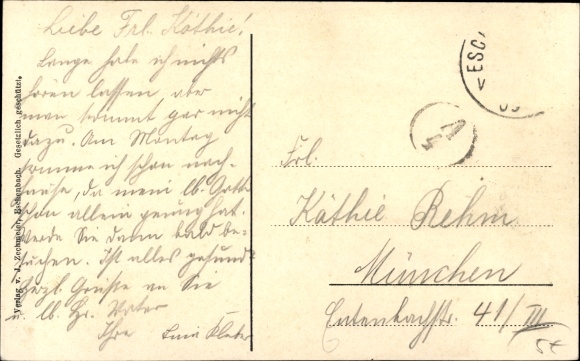 Liebe Frl. Käthie!
Lange habe ich nichts
hören lassen, aber
man kommt gar nicht
dazu. Am Montag
komme ich schon nach-
hause, da mein lb. Gotth.
schon allein genug hat.
Werde Sie dann bald be-
suchen. Ist alles gesund?
Herzl. Grüsse an Sie
u. lb. Hr. Vater
Ihre
Verlag v. J. Zechmeier, Eschenbach. Gesetzlich geschützt.
ESC
A
Frl.
Käthie Rehm
München
Entenbachstr. 41/III